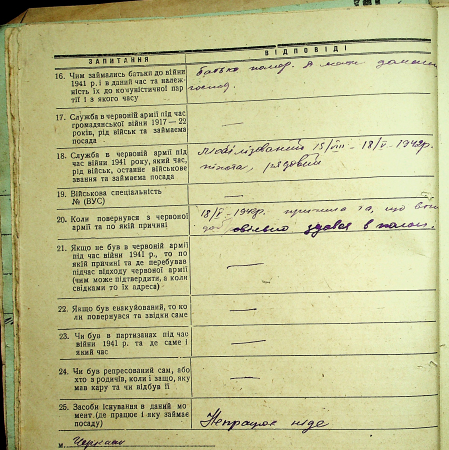 ЗАПИТАННЯ
ВІДПОВІДІ
16. Чим займались батьки до війни
1941 р. і в даний час та належ-
ність їх до комуністичної пар-
тії і з якого часу
батько помер. А мати домаш
господ.
17. Служба в червоній армії під час
громадянської війни 1917—22
років, рід військ та займаєма
посада
—
18. Служба в червоній армії під час
війни 1941 року, який час,
рід військ, останнє військове
звання та займаєма посада
Мобілізований 15/VIII - 18/X - 1942р.
піхота, рядовий
19. Військова спеціальність
№ (ВУС)
—
20. Коли повернувся з червоної
армії та по якій причині
18/X - 1942р. причина та, що
здався в полон.
21. Якщо не був в червоній армії
під час війни 1941 р., то по
якій причині та де перебував
підчас відходу червоної армії
(чим може підтвердити, а коли
свідками то їх адреса)
—
22. Якщо був евакуйований, то ко
ли повернувся та звідки саме
—
23. Чи був в партизанах під час
війни 1941 р. та де саме і
який час
—
24. Чи був репресований сам, або
хто з родичів, коли і защо, яку
мав кару та чи відбув її
—
25. Засоби існування в даний мо
мент (де працює і яку займає
посаду)
Непрацює ніде
м.